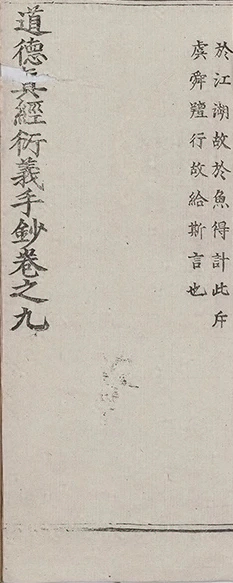 於江湖故於魚得計此斥
虞舜羶行故給斯言也
道德真經衍義手鈔卷之九